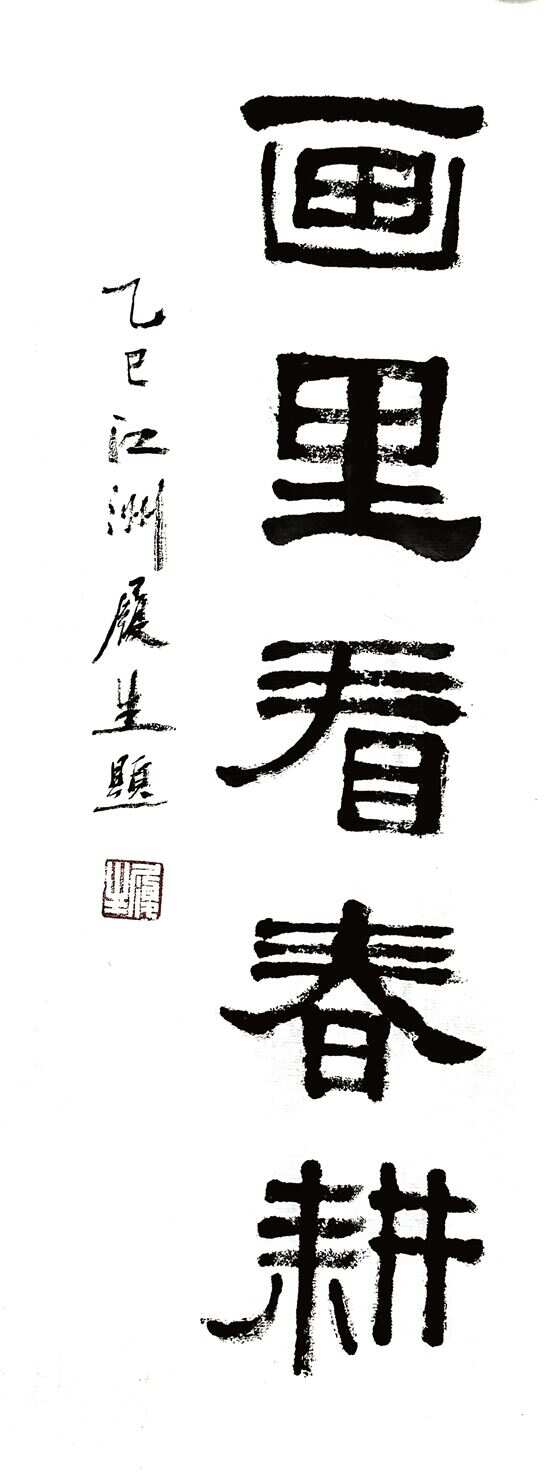 画里看春耕
乙巳江洲履生题
履生